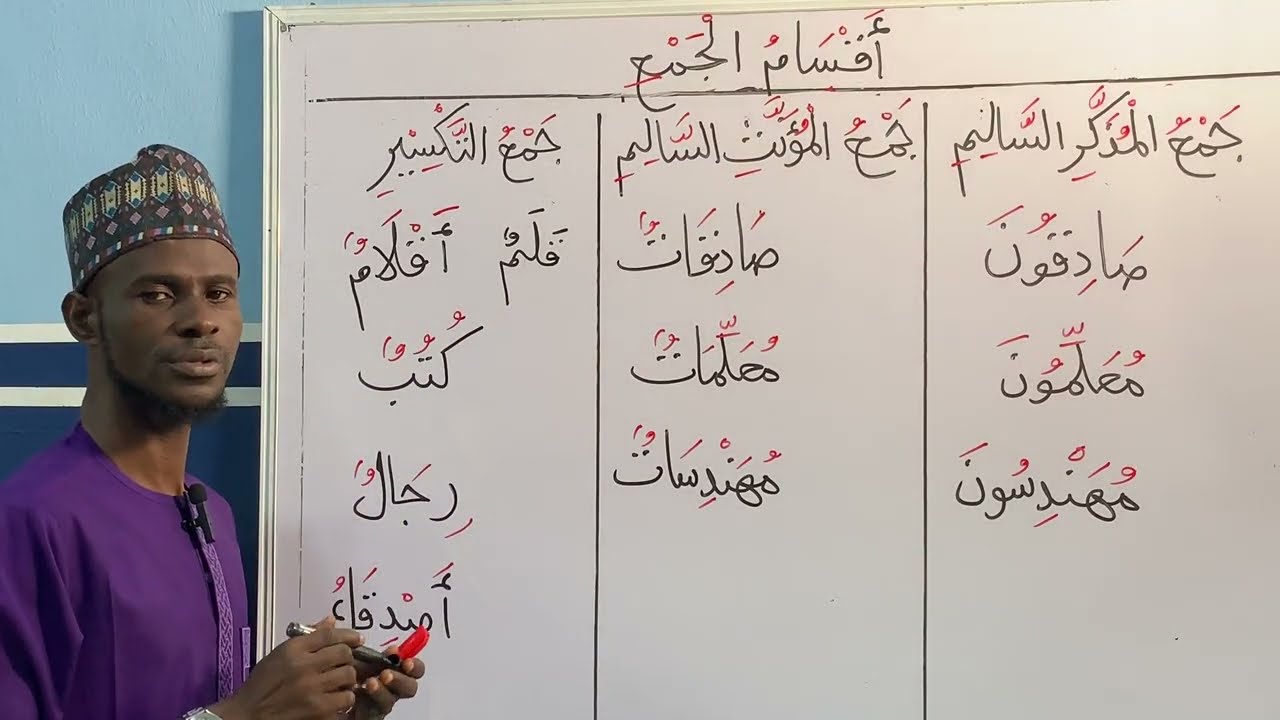 أَقْسَامُ الْجَمْعِ
جَمْعُ الْمُذَكَّرِ السَّالِمِ
صَادِقُونَ
مُعَلِّمُونَ
مُهَنْدِسُونَ
جَمْعُ الْمُؤَنَّثِ السَّالِمِ
صَادِقَاتٌ
مُعَلِّمَاتٌ
مُهَنْدِسَاتٌ
جَمْعُ التَّكْسِيْرِ
قَلَمٌ أَقْلَامٌ
كُتُبٌ
رِجَالٌ
أَصْدِقَاءُ